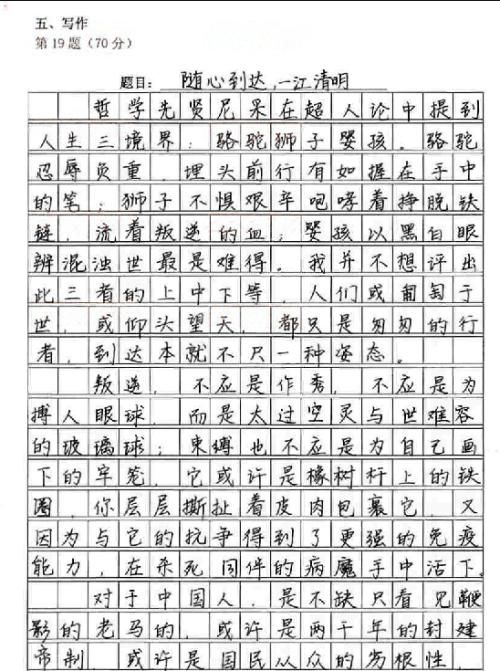 五、写作
第19题（70分）
题目：随心到达,一江清明
哲学先贤尼采在超人论中提到
人生三境界：骆驼狮子婴孩。骆驼
忍辱负重，埋头前行有如握在手中
的笔；狮子不惧艰辛咆哮着挣脱铁
链，流着叛逆的血；婴孩以黑白眼
辨混浊世最是难得。我并不想评出
此三者的上中下等，人们或匍匐于
世，或仰头望天，都只是匆匆的行
者，到达本就不只一种姿态。
叛逆，不应是作秀，不应是为
搏人眼球，而是太过空灵与世难容
的玻璃球；束缚也不应是为自己画
下的牢笼，它或许是橡树杆上的铁
圈，你层层撕扯着皮肉包裹它，又
因为与它的抗争得到了更强的免疫
能力，在杀死同伴的病魔手中活下。
对于中国人，是不缺只看见鞭
影的老马的，或许是两千年的封建
帝制，或许是国民从众的劣根性